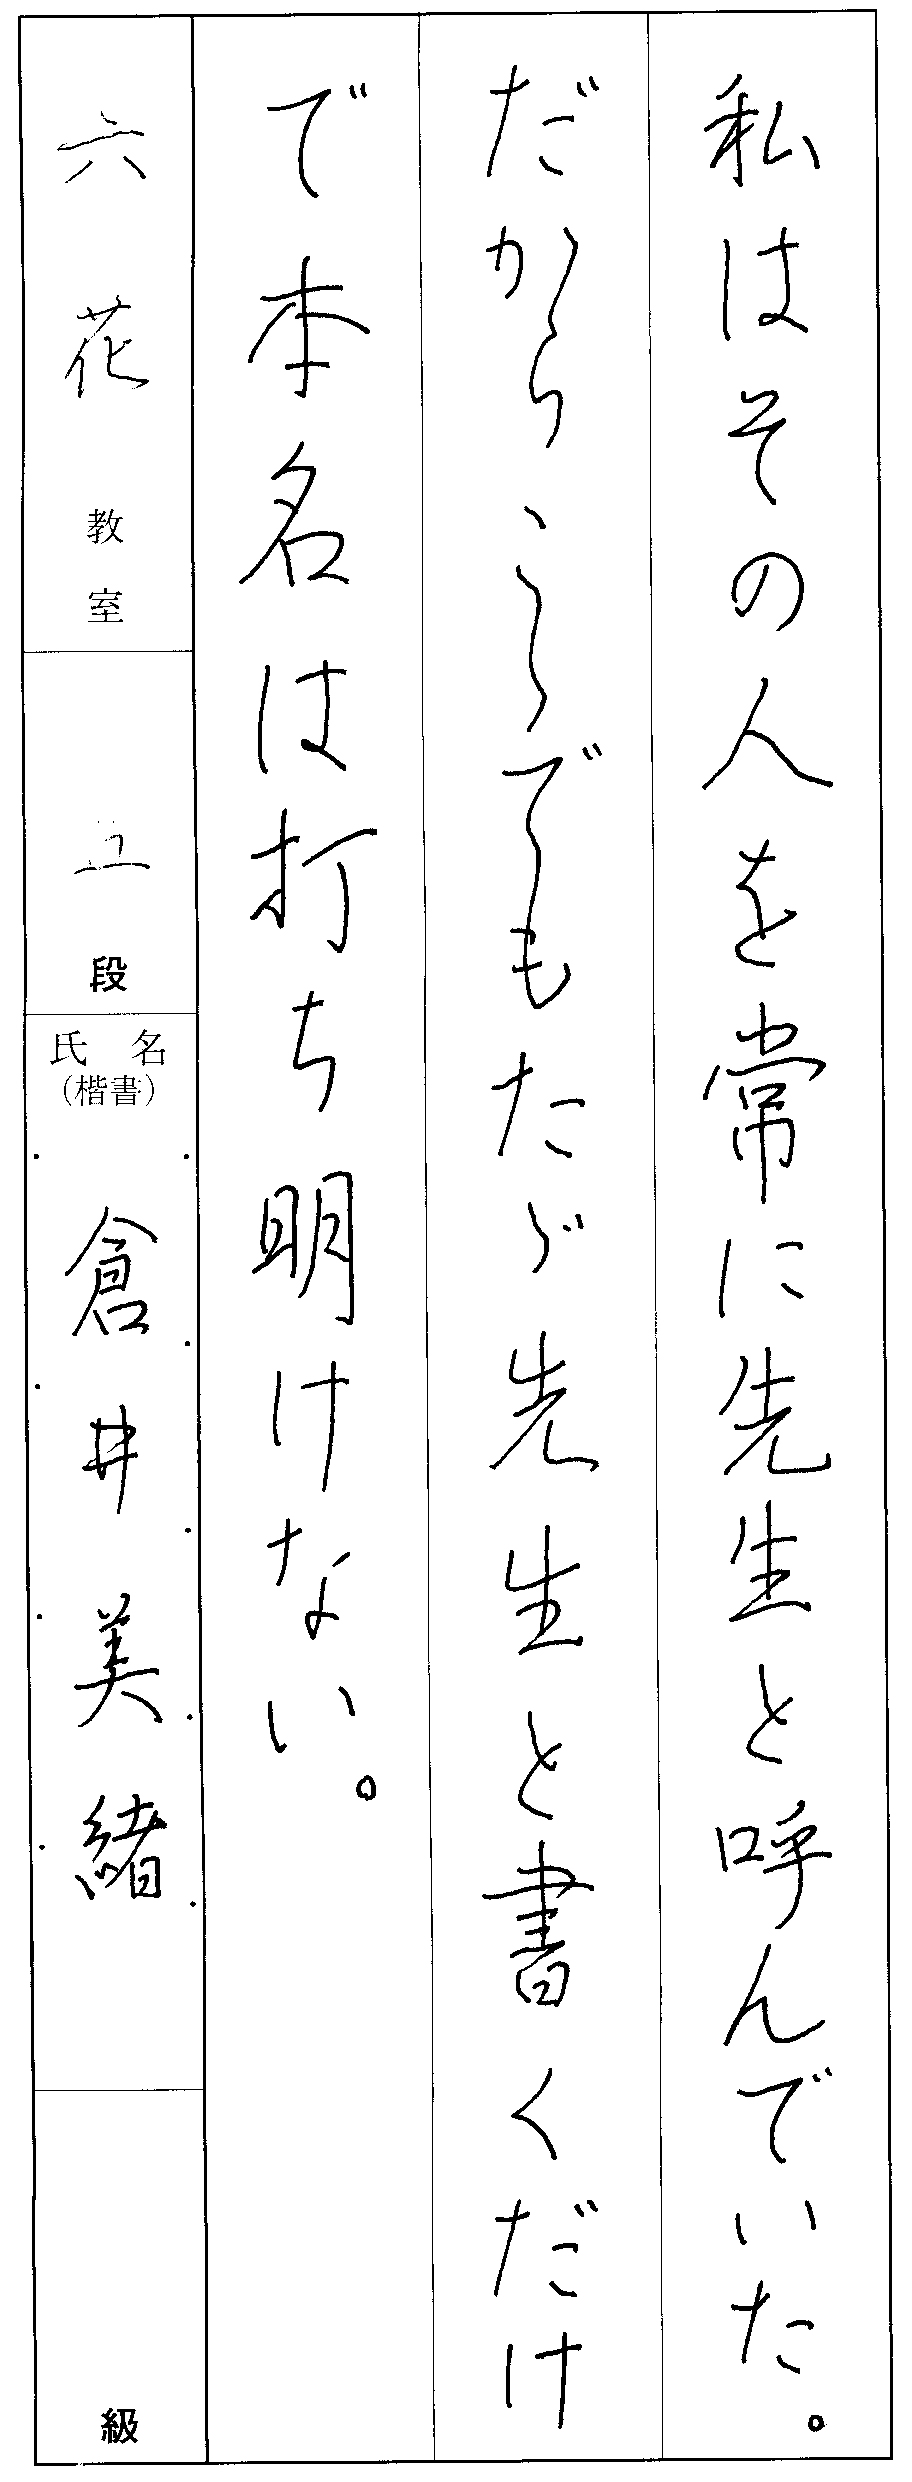 私はその人を常に先生と呼んでいた。
だからこゝでもたゞ先生と書くだけ
で本名は打ち明けない。
六花教室
段
氏名
(楷書)
倉井美緒
級